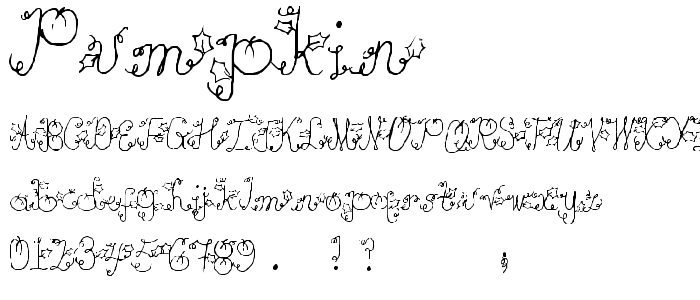 Pumpkin
ABCDEFGHIJKLMNOPQRSTUVWXYZ
abcdefghijklmnopqrstuvwxyz
0123456789 . ! ? ;